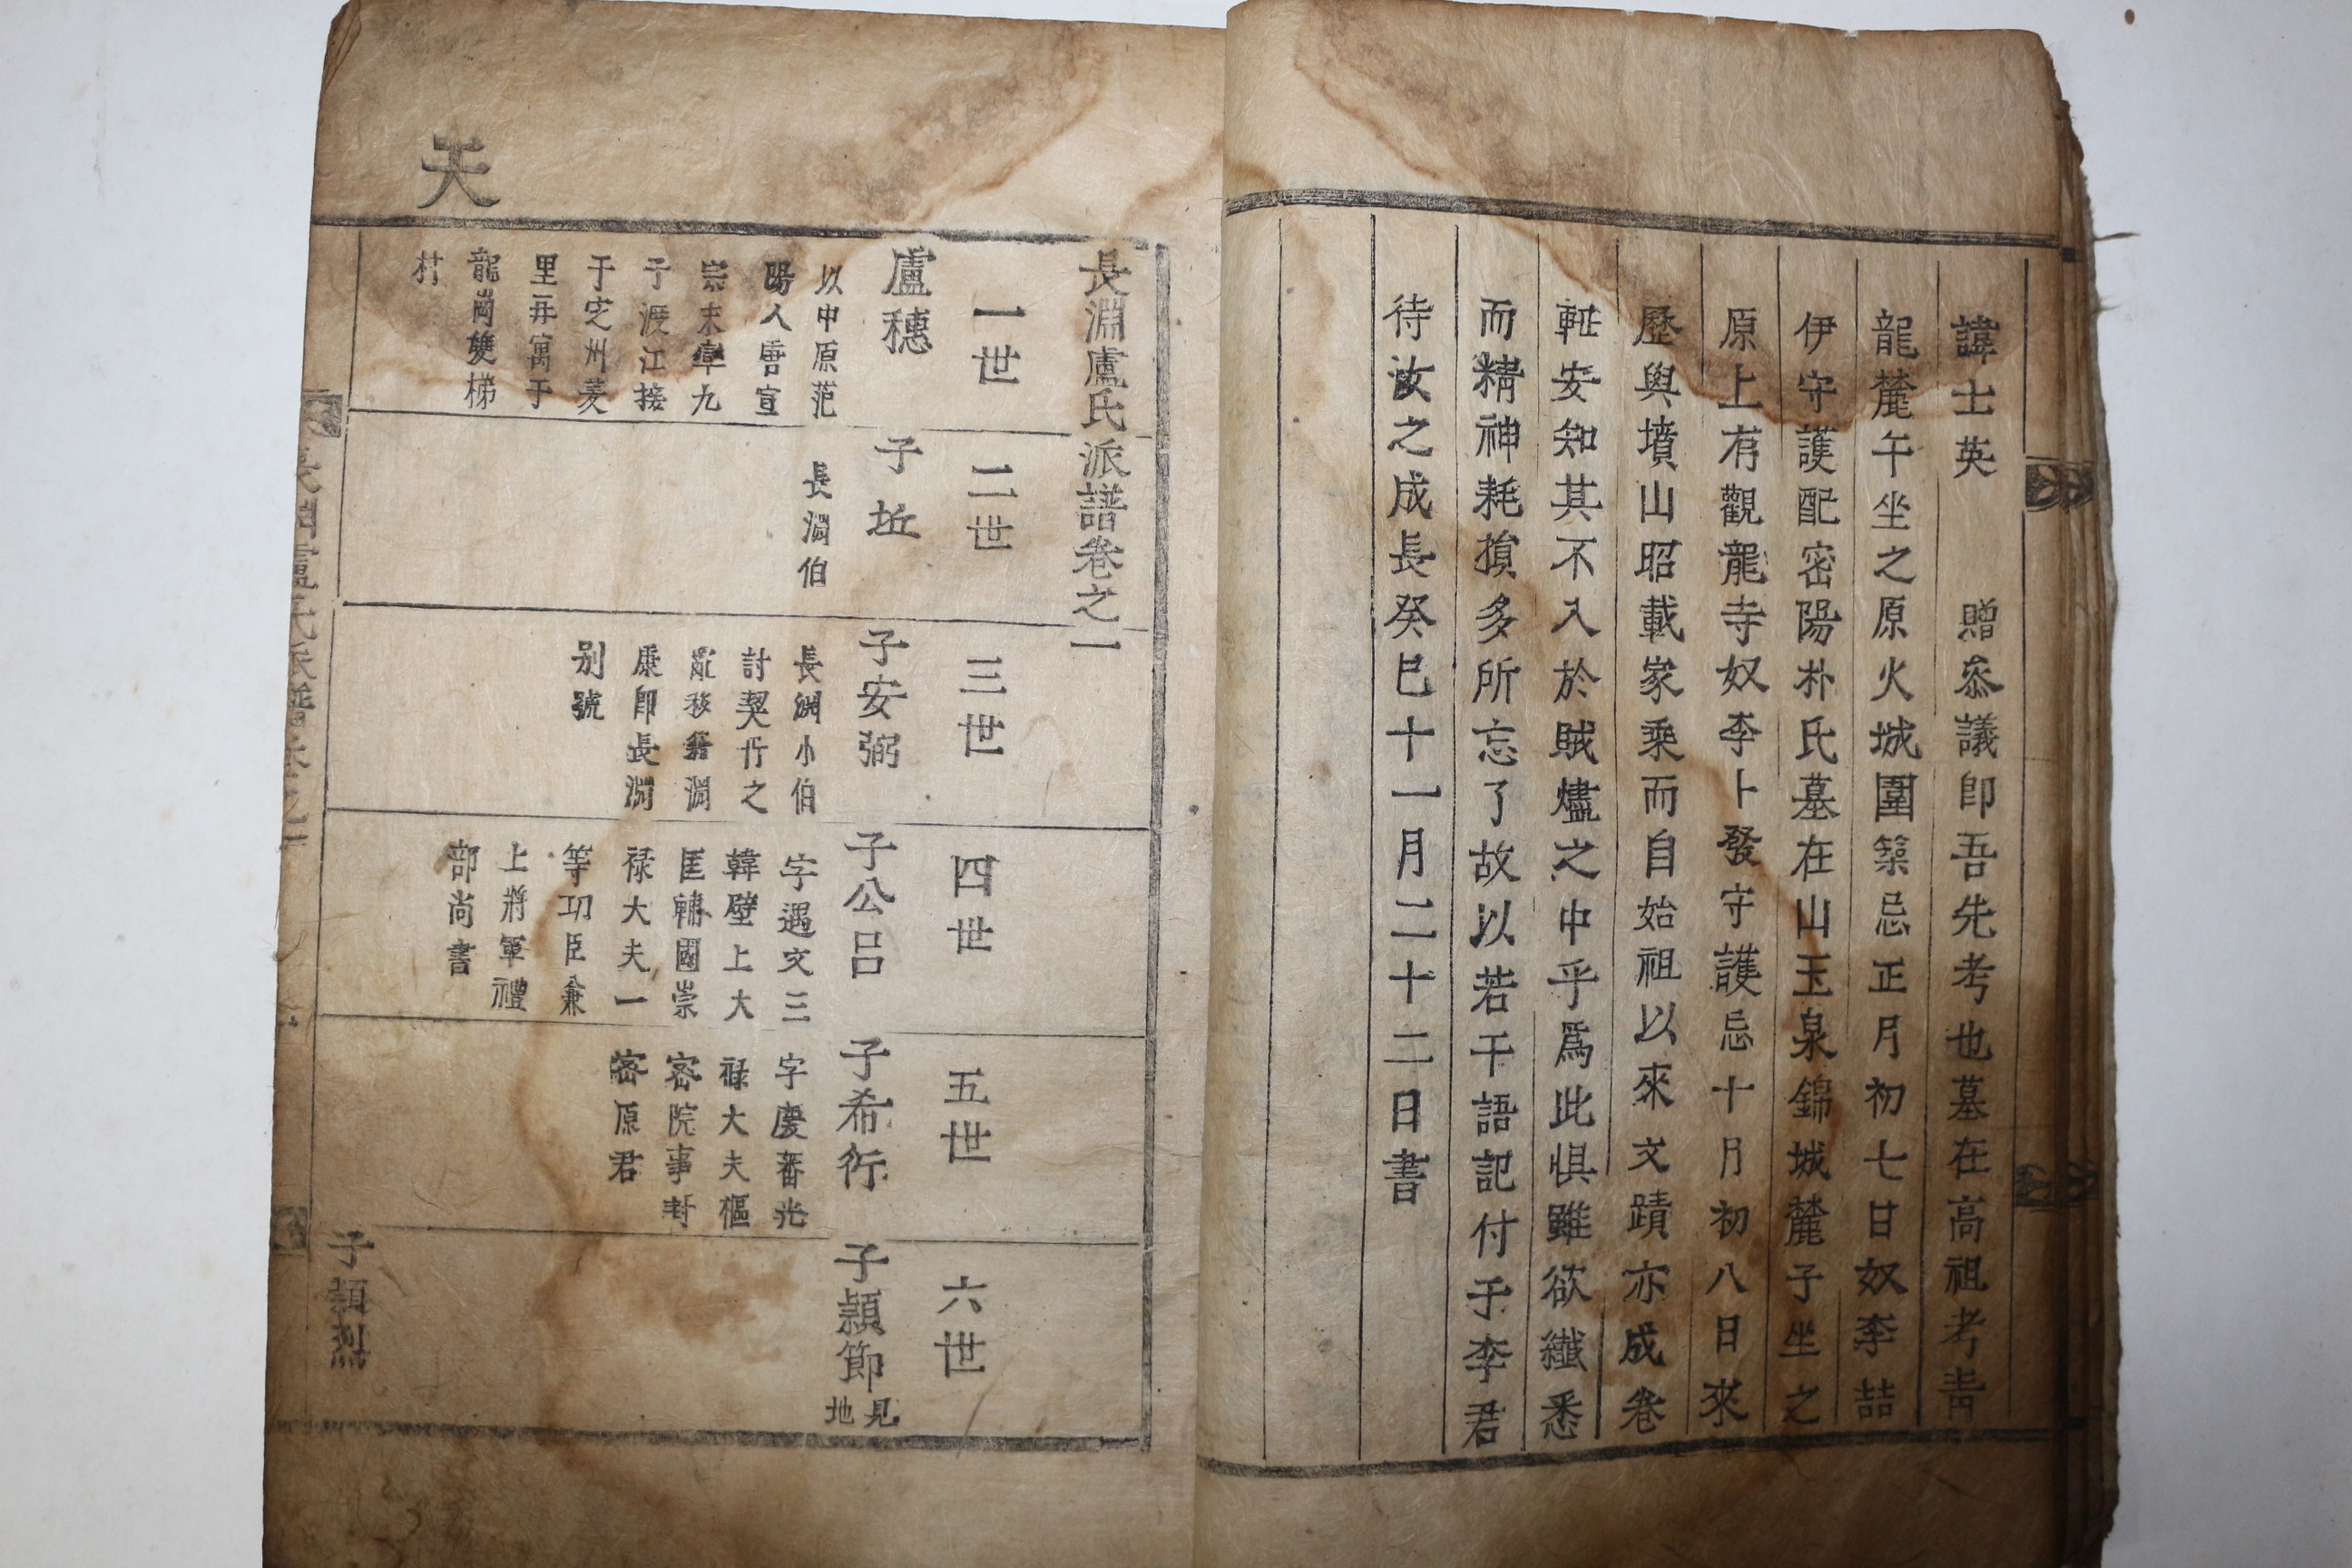 諱士英 贈叅議卽吾先考也墓在高祖考靑
龍麓午坐之原火城圍築忌正月初七日奴李喆
伊守護配密陽朴氏墓在山玉泉錦城麓子坐之
原上有觀龍寺奴李卜發守護忌十月初八日來
歷與墳山昭載家乘而自始祖以來文蹟亦成卷
軴安知其不入於賊燼之中乎爲此惧雖欲纖悉
而精神耗損多所忘了故以若干語記付于李君
待汝之成長癸巳十一月二十二日書
天
長淵盧氏派譜卷之一
一世
盧穗
以中原范
陽人唐宣
宗末率九
子渡江接
于定州菱
里再寓于
龍崗雙梯
村
二世
子坵
長淵伯
三世
子安弼
長淵小伯
討契丹之
亂移籍淵
康卽長淵
別號
四世
子公呂
字遇文三
韓壁上大
匡輔國崇
祿大夫一
等功臣兼
上將軍禮
部尙書
五世
子希行
字慶蕃光
祿大夫樞
密院事封
密原君
六世
子穎節
見地
子穎烈
長淵盧氏派譜卷之一